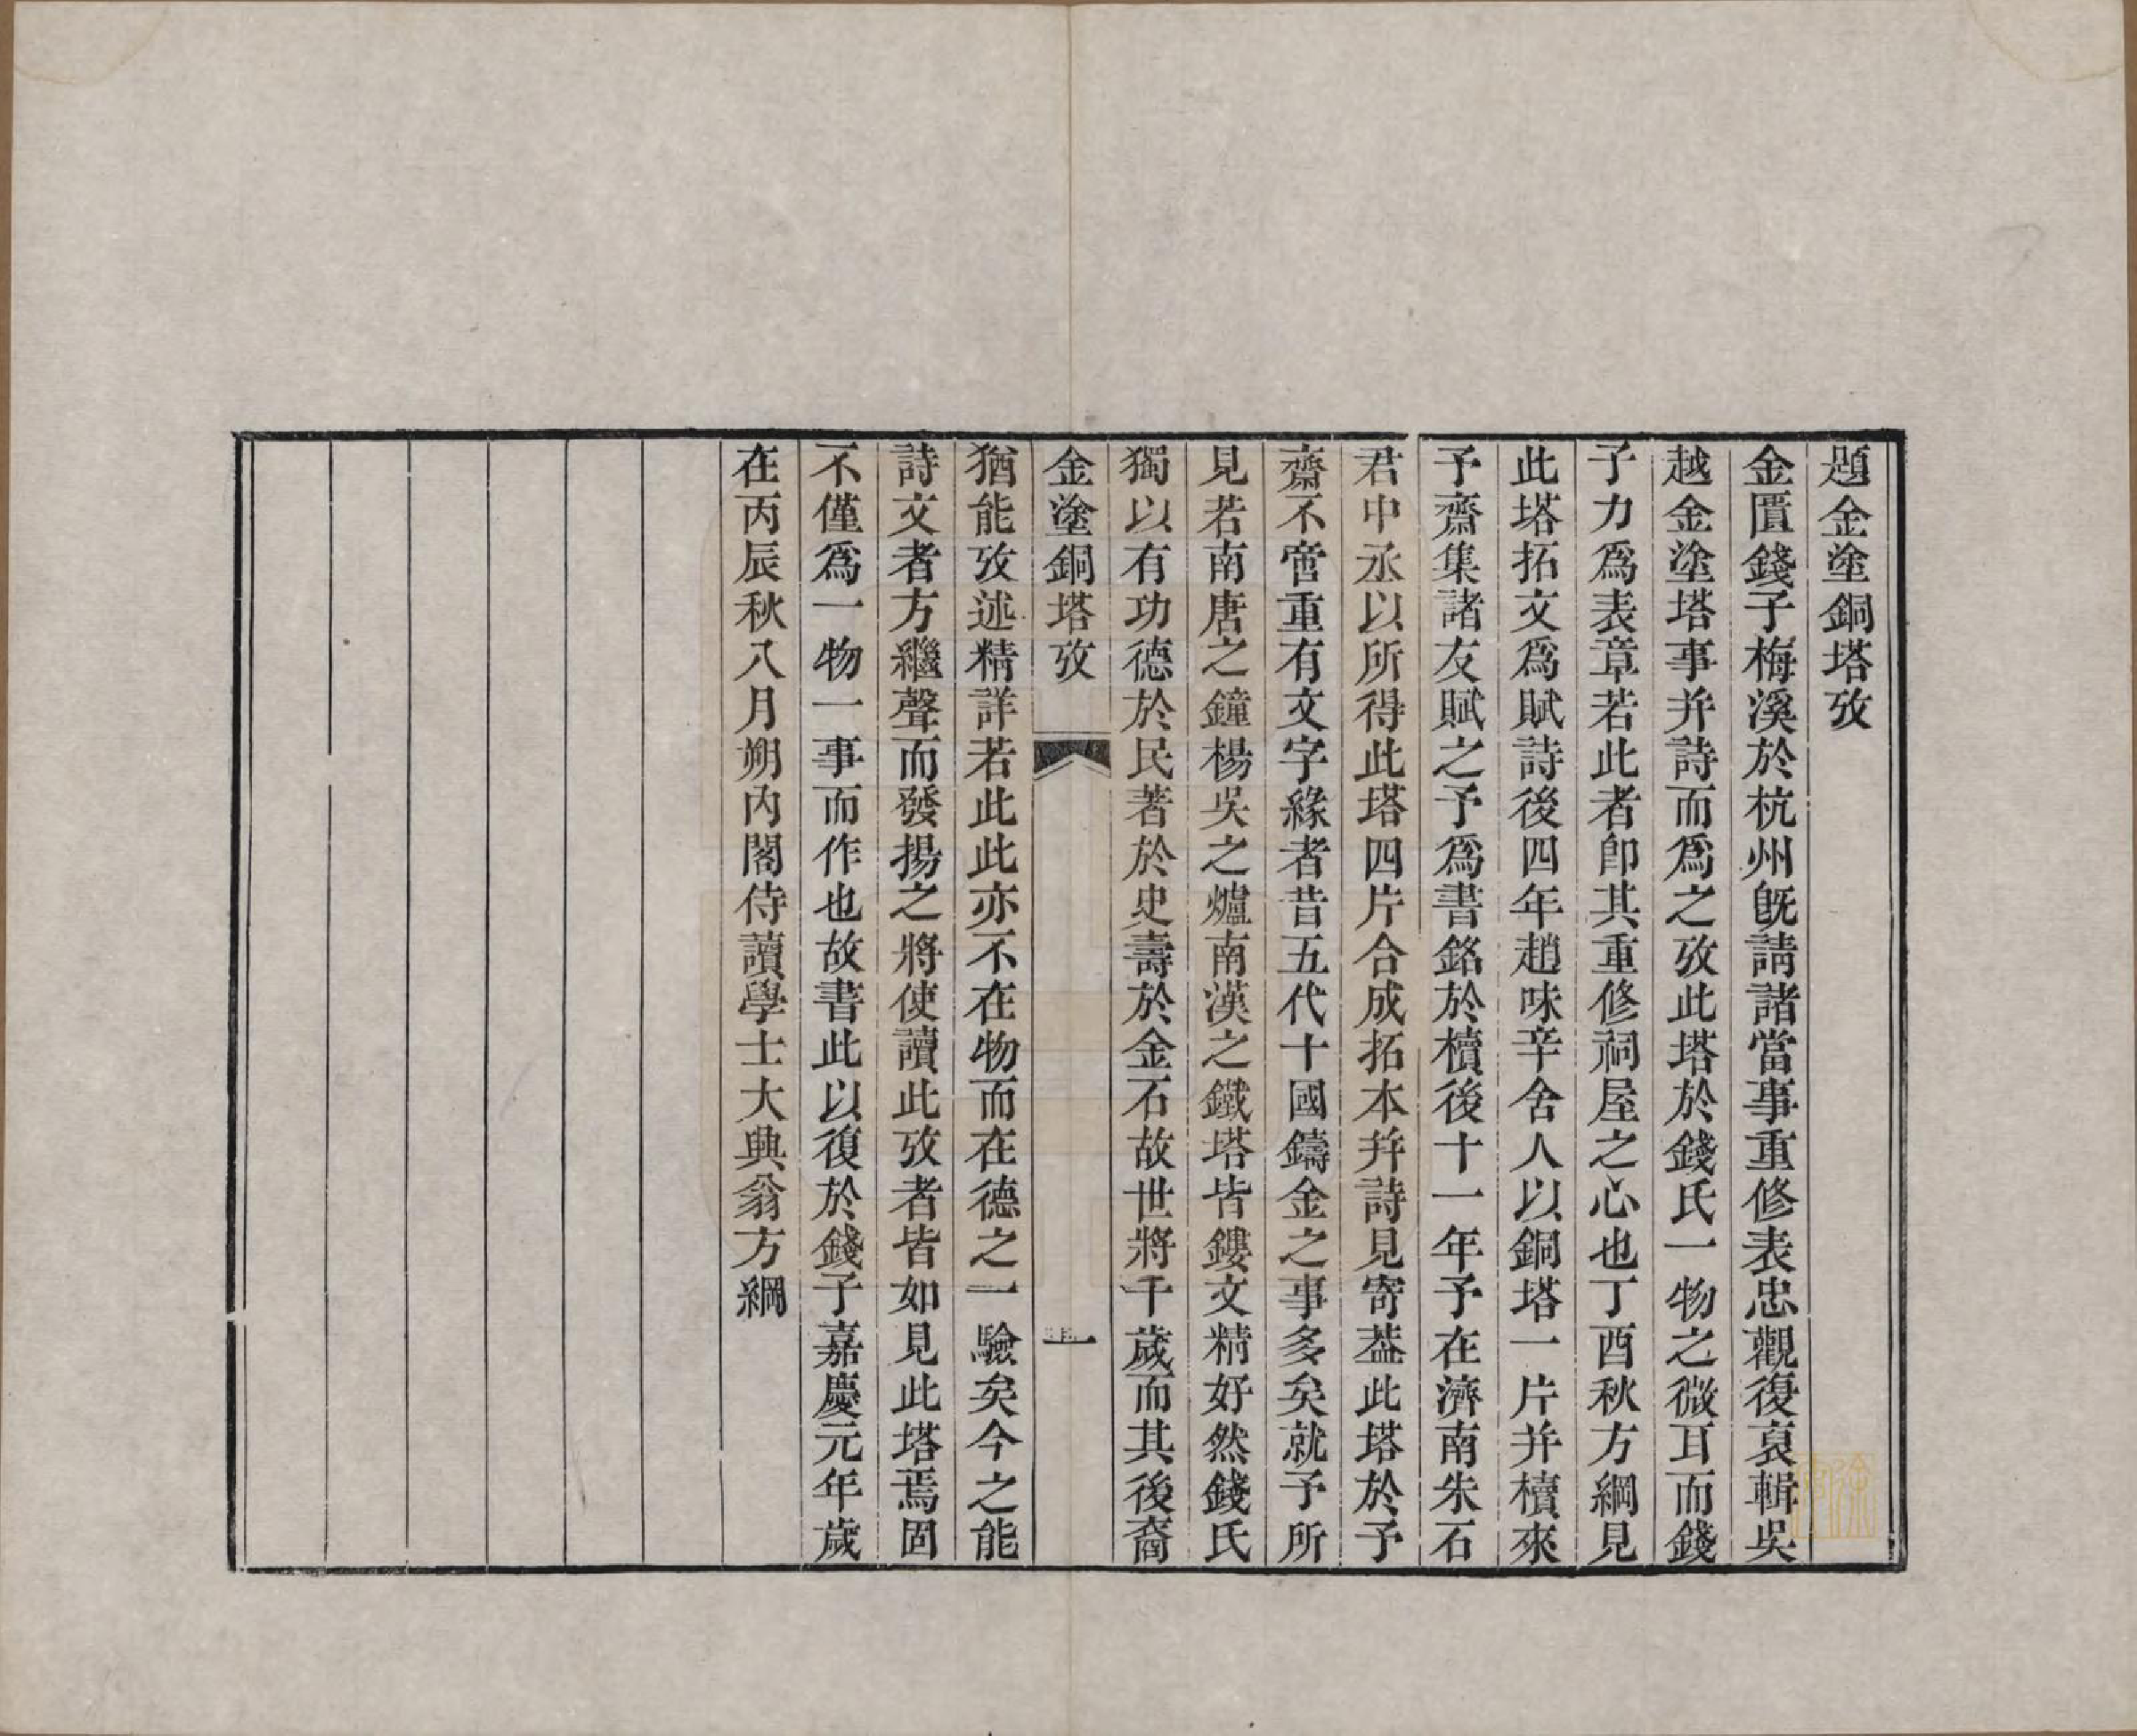 題金塗銅塔攷
金匱錢子梅溪於杭州旣請諸當事重修表忠觀復裒輯吳
越金塗塔事并詩而爲之攷此塔於錢氏一物之微耳而錢
子力爲表章若此者卽其重修祠屋之心也丁酉秋方綱見
此塔拓文爲賦詩後四年趙味辛舍人以銅塔一片并櫝來
予齋集諸友賦之予爲書銘於櫝後十一年予在濟南朱石
君中丞以所得此塔四片合成拓本并詩見寄葢此塔於予
齋不啻重有文字緣者昔五代十國鑄金之事多矣就予所
見若南唐之鐘楊吳之爐南漢之鐵塔皆鏤文精好然錢氏
獨以有功德於民著於史壽於金石故世將千歲而其後裔
金塗銅塔攷 一
猶能攷述精詳若此此亦不在物而在德之一驗矣今之能
詩文者方繼聲而發揚之將使讀此攷者皆如見此塔焉固
不僅爲一物一事而作也故書此以復於錢子嘉慶元年歲
在丙辰秋八月朔內閣侍讀學士大興翁方綱